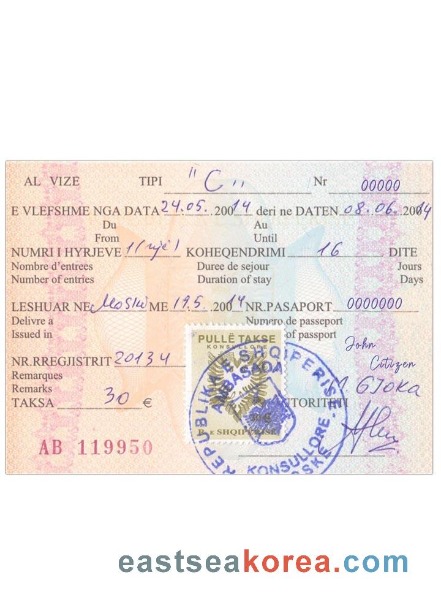 AL VIZE TIPI "C" Nr 00000
E VLEFSHME NGA DATA 24.05.2014 deri ne DATEN 08.06.2014
Du Au
From Until
NUMRI I HYRJEVE 1(një) KOHEQENDRIMI 16 DITE
Nombre d'entrees Duree de sejour Jours
Number of entries Duration of stay Days
LESHUAR NE Moskë ME 19.5.2014 NR.PASAPORT 0000000
Delivre a Numero de passeport
Issued in of passport
John
NR.RREGJISTRIT 20134 Citizen
Remarques GJOKA
Remarks AUTORITETI
TAKSA 30 €
PULLË TAKSE
KONSULLORE
R. e SHQIPËRISË
REPUBLIKA E SHQIPERISE
AMBASADA
KONSULLORE
AB 119950
eastseakorea.com